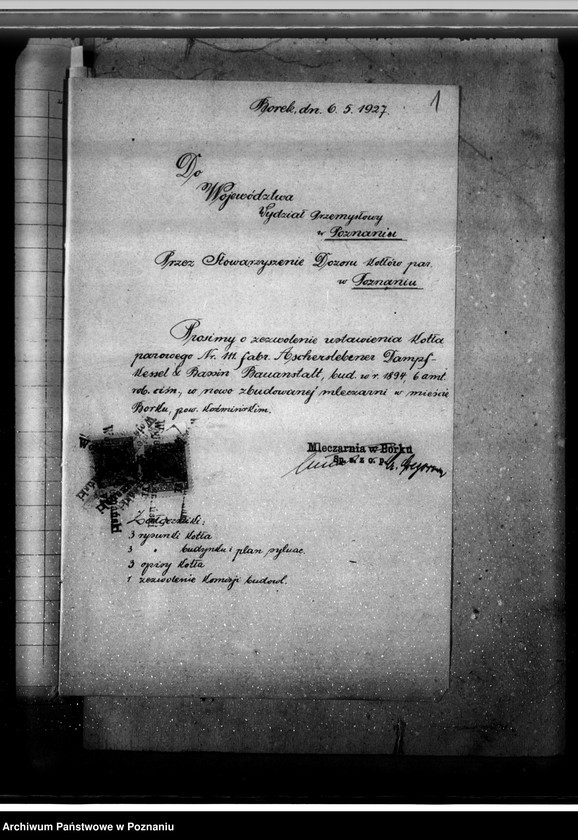 Borek, dn. 6. 5. 1927.
1
Do
Województwa
Wydział Przemysłowy
w Poznaniu
Przez Stowarzyszenie Dozoru Kotłów par.
w Poznaniu
Prosimy o zezwolenie ustawienia Kotła
parowego Nr. 111. fabr. Ascherslebener Dampf-
Kessel & Bassin Bauanstalt, bud. w r. 1894, 6 atm.
rob. ciśn., w nowo zbudowanej mleczarni w mieście
Borku, pow. Koźmińskim.
Mleczarnia w Borku
Sp. z. z o. p.
Załączniki:
3 rysunki Kotła
3 " budynku i plan sytuac.
3 opisy Kotła
1 zezwolenie Komisji budowl.
Archiwum Państwowe w Poznaniu